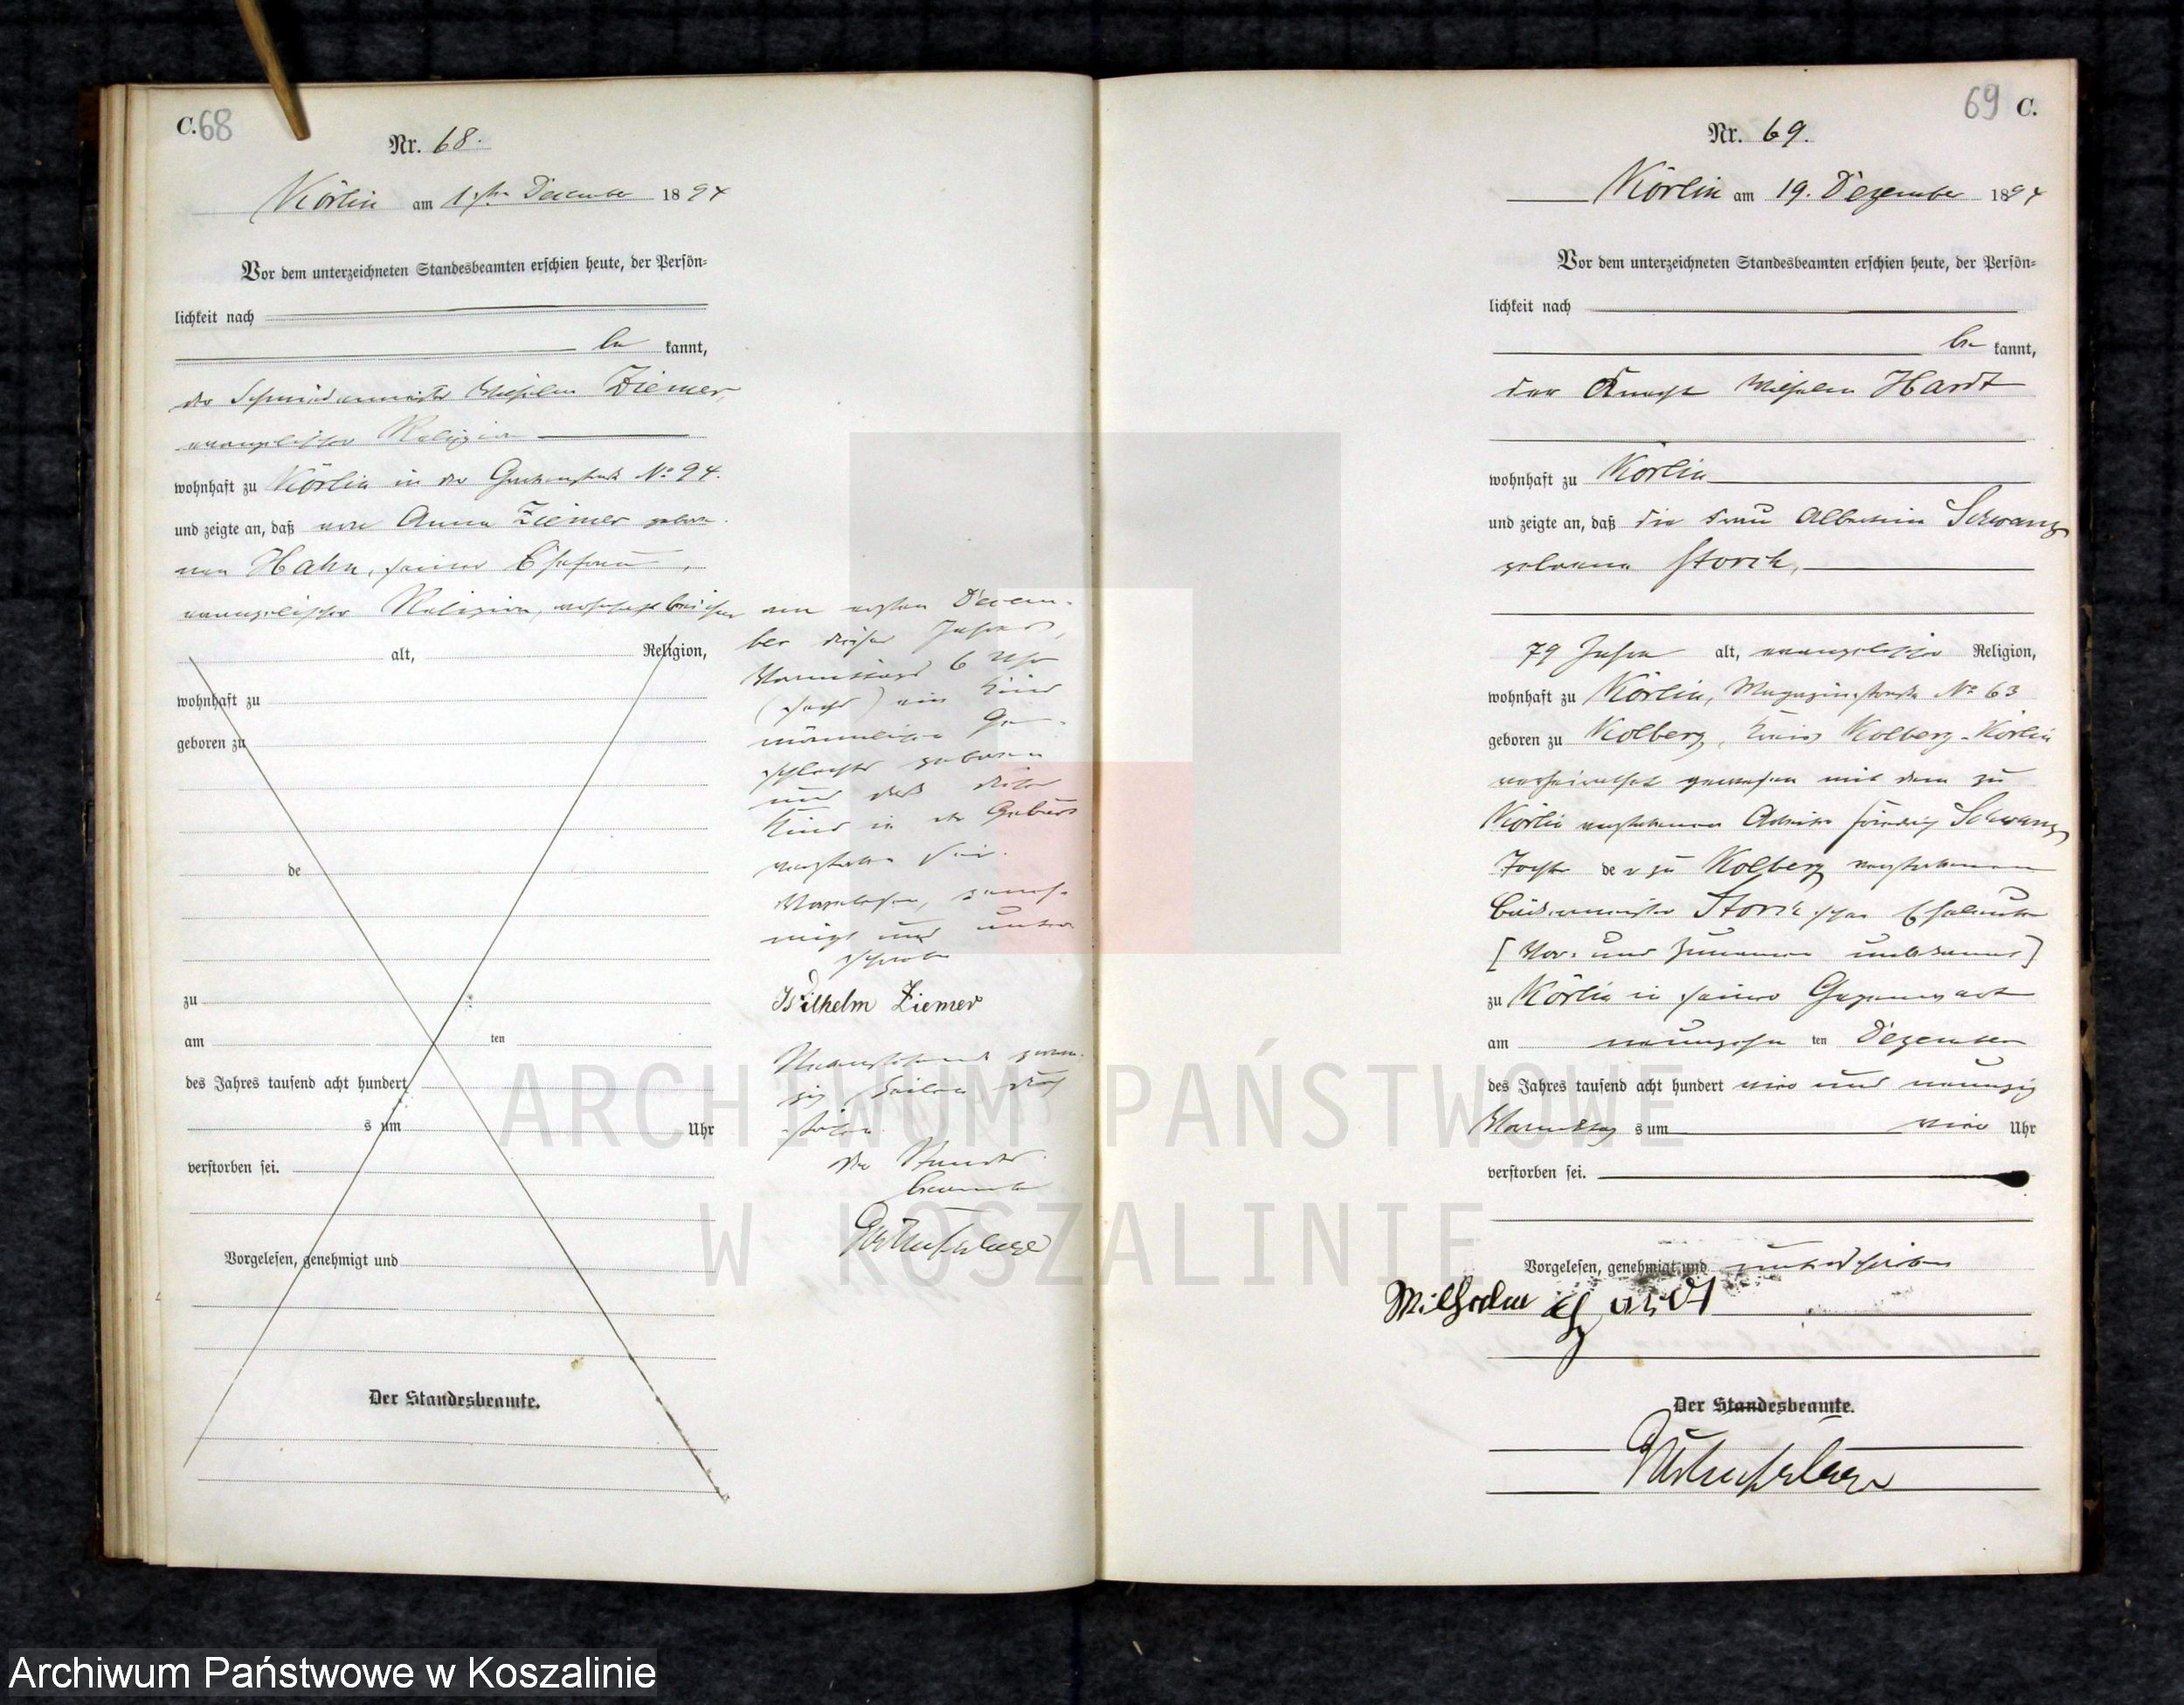 C. 68
Nr. 68.
Körlin am 1ten December 1894
Vor dem unterzeichneten Standesbeamten erschien heute, der Persön-
lichkeit nach
be kannt,
der Schmiedemeister Wilhelm Ziemer,
evangelischer Religion
wohnhaft zu Körlin in der No 94.
und zeigte an, daß von Anna Ziemer gebore-
nen Hahn, seiner Ehefrau,
evangelischer Religion, wohnhaft bei ihm
alt, Religion,
wohnhaft zu
geboren zu
de
zu
am ten
des Jahres tausend acht hundert
s um Uhr
verstorben sei.
Vorgelesen, genehmigt und
Der Standesbeamte.
am ersten Decem-
ber dieses Jahres,
Vormittags 6 Uhr
(sechs) ein Kind
männlichen Ge-
schlechts geboren
und daß dieses
Kind in der Geburt
verstorben sei.
Vorgelesen, geneh-
migt und unter-
schrieben
Wilhelm Ziemer
Vorstehend zwan-
zig Zeilen
Der Standes-
beamte
69 C.
Nr. 69.
Körlin am 19. Dezember 1894
Vor dem unterzeichneten Standesbeamten erschien heute, der Persön-
lichkeit nach
be kannt,
der Knecht Wilhelm Hardt
wohnhaft zu Körlin
und zeigte an, daß die Frau Albertine Schwanz
geborene Storck,
79 Jahre alt, evangelischer Religion,
wohnhaft zu Körlin, Magazinstraße No 63
geboren zu Kolberg, Kreis Kolberg-Körlin
verheirathet gewesen mit dem zu
Körlin verstorbenen Arbeiter Friedrich Schwanz
Tochter der zu Kolberg verstorbenen
Storck'schen Eheleute
[Vor- und Zunamen unbekannt]
zu Körlin in seiner Gegenwart
am neunzehn ten Dezember
des Jahres tausend acht hundert vier und neunzig
Vormittag s um vier Uhr
verstorben sei.
Vorgelesen, genehmigt und unterschrieben
Wilhelm Hardt
Der Standesbeamte.
ARCHIWUM PAŃSTWOWE
W KOSZALINIE
Archiwum Państwowe w Koszalinie